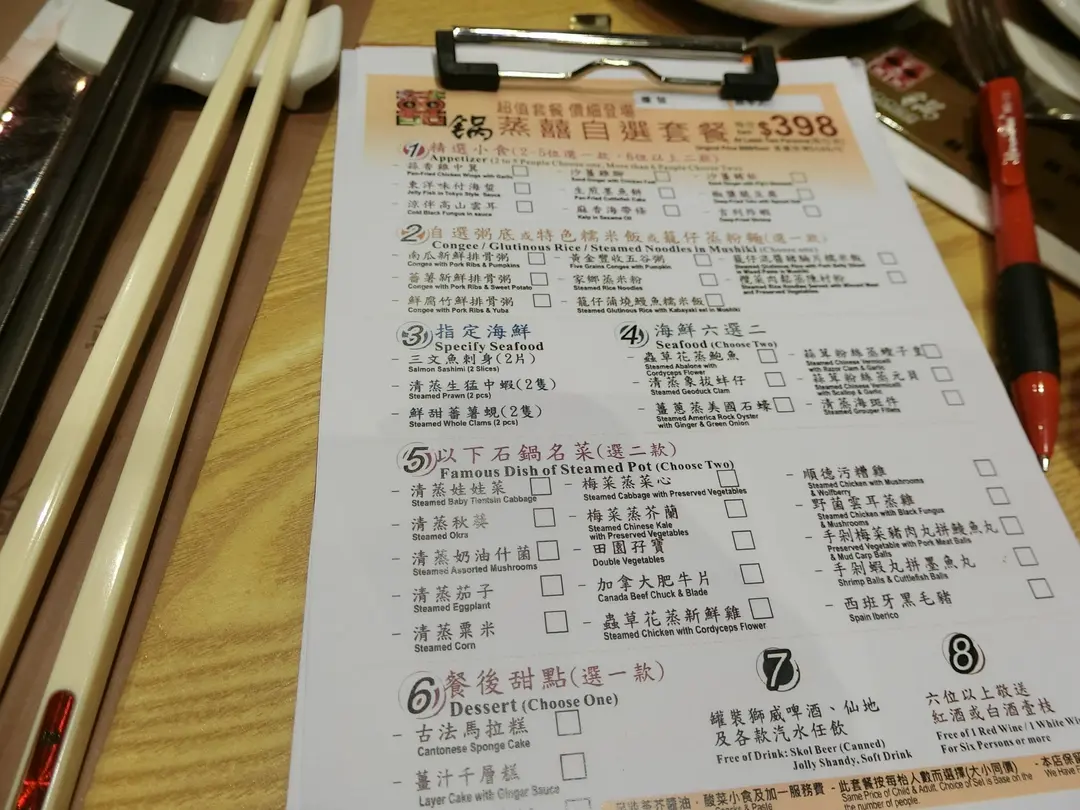 超值套餐 價細登場
鍋 蒸囍自選套餐 $398
At Least Two Persons
1 精選小食(2-5位選一款，6位以上二款)
Appetizer (2 to 5 People Choose one, More than 6 People Choose Two)
- 蒜香雞中翼
Pan-Fried Chicken Wings with Garlic
- 沙薑雞腳
- 東洋味付海蜇
Jelly Fish in Tokyo Style Sauce
- 生煎墨魚餅
Pan-Fried Cuttlefish Cake
- 涼伴高山雲耳
Cold Black Fungus in sauce
- 麻香海帶條
Kelp in Sesame Oil
- 吉列炸蝦
Deep-Fried Shrimp
2 自選粥底或特色糯米飯或籠仔蒸粉麵(選一款)
Congee / Glutinous Rice / Steamed Noodles in Mushiki (Choose one)
- 南瓜新鮮排骨粥
Congee with Pork Ribs & Pumpkins
- 黃金豐收五谷粥
Five Grains Congee with Pumpkin
- 蕃薯新鮮排骨粥
Congee with Pork Ribs & Sweet Potato
- 家鄉蒸米粉
Steamed Rice Noodles
- 鮮腐竹鮮排骨粥
Congee with Pork Ribs & Yuba
- 籠仔蒲燒鰻魚糯米飯
Steamed Glutinous Rice with Kabayaki eel in Mushiki
3 指定海鮮
Specify Seafood
- 三文魚刺身(2片)
Salmon Sashimi (2 Slices)
- 清蒸生猛中蝦(2隻)
Steamed Prawn (2 pcs)
- 鮮甜蕃薯蜆(2隻)
Steamed Whole Clams (2 pcs)
4 海鮮六選二
Seafood (Choose Two)
- 蟲草花蒸鮑魚
Steamed Abalone with
Cordyceps Flower
- 清蒸象拔蚌仔
Steamed Geoduck Clam
- 薑蔥蒸美國石蠔
Steamed America Rock Oyster
with Ginger & Green Onion
- 蒜茸粉絲蒸蟶子皇
Steamed Chinese Vermicelli
with Razor Clam & Garlic
- 蒜茸粉絲蒸元貝
Steamed Chinese Vermicelli
with Scallop & Garlic
- 清蒸海斑件
Steamed Grouper Fillets
5 以下石鍋名菜(選二款)
Famous Dish of Steamed Pot (Choose Two)
- 清蒸娃娃菜
Steamed Baby Tientsin Cabbage
- 清蒸秋葵
Steamed Okra
- 清蒸奶油什菌
Steamed Assorted Mushrooms
- 清蒸茄子
Steamed Eggplant
- 清蒸粟米
Steamed Corn
- 梅菜蒸菜心
Steamed Cabbage with Preserved Vegetables
- 梅菜蒸芥蘭
Steamed Chinese Kale
with Preserved Vegetables
- 田園孖寶
Double Vegetables
- 加拿大肥牛片
Canada Beef Chuck & Blade
- 蟲草花蒸新鮮雞
Steamed Chicken with Cordyceps Flower
- 順德污糟雞
Steamed Chicken with Mushrooms
& Wolfberry
- 野菌雲耳蒸雞
Steamed Chicken with Black Fungus
& Mushrooms
- 手剁梅菜豬肉丸拼鯪魚丸
Preserved Vegetable with Pork Meat Balls
& Mud Carp Balls
- 手剁蝦丸拼墨魚丸
Shrimp Balls & Cuttlefish Balls
- 西班牙黑毛豬
Spain Iberico
6 餐後甜點(選一款)
Dessert (Choose One)
- 古法馬拉糕
Cantonese Sponge Cake
- 薑汁千層糕
Layer Cake with Ginger Sauce
7
罐裝獅威啤酒、仙地
及各款汽水任飲
Free of Drink: Skol Beer (Canned)
Jolly Shandy, Soft Drink
8
六位以上敬送
紅酒或白酒壹枝
Free of 1 Red Wine / 1 White Wi
For Six Persons or more
酸菜小食及加一服務費
- 此套餐按每枱人數而選擇(大小同價)
Same Price of Child & Adult, Choice of Set is Base on the
the number of people.
- 本店保留
We Have